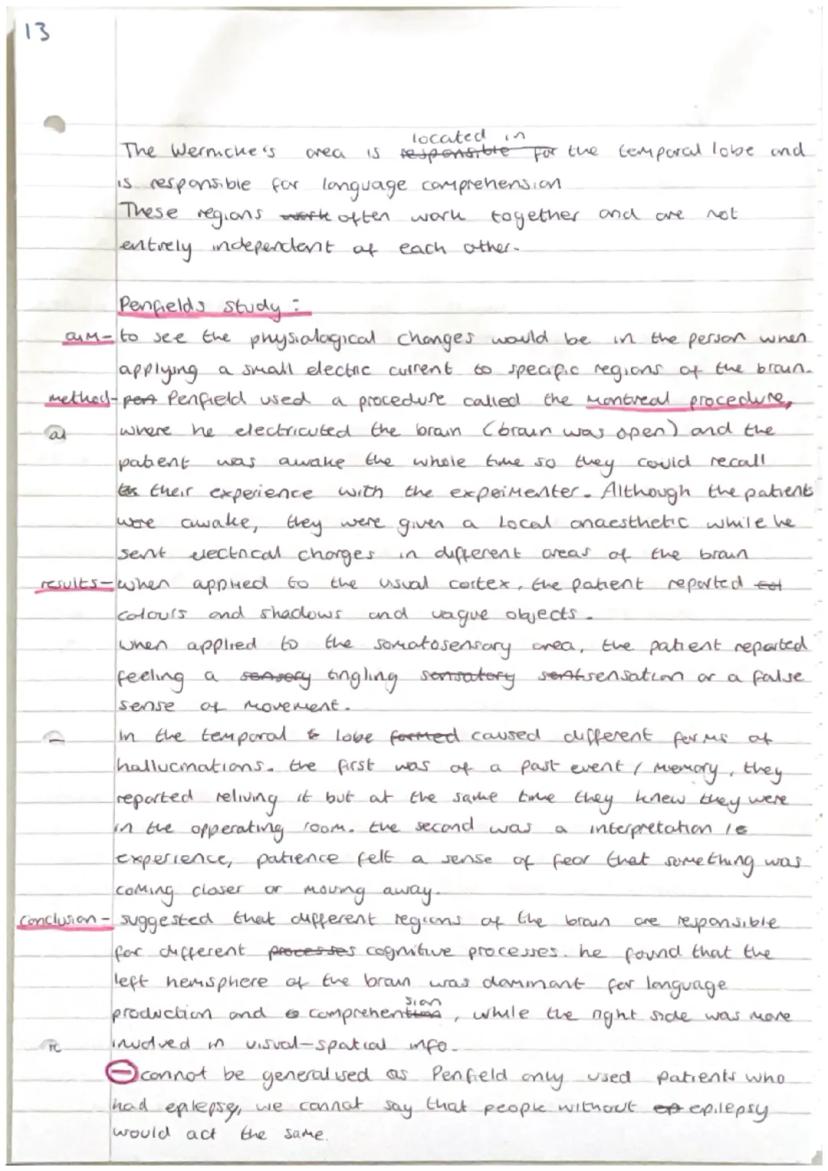 13
located in
The Wernicke's area is responsible for the temporal lobe and
is responsible for language comprehension
These regions work often work together and are not
entirely independent of each other.
Penfields study :
aim- to see the physiological changes would be in the person when
applying a small electric current to specific regions of the brain.
method- pen Penfield used a procedure called the Montreal procedure,
where he electricuted the brain (brain was open) and the
patient was awake the whole time so they could recall
their experience with the expeimenter. Although the patient
were awake, they were given a local anaesthetic while he
sent electrical charges in different areas of the brain
results- when applied to the usual cortex, the patient reported
colours and shadows and vague objects.
when applied to the somatosensory area, the patient reported
feeling a sensory tingling sensatory sensation or a false
sense of movement.
In the temporal & lobe formed caused different forms of
hallucinations. the first was of a past event / memory, they
reported reliving it but at the same time they knew they were
in the opperating room. the second was a interpretation
experience, patience felt a sense of fear that something was
coming closer or moving away.
conclusion- suggested that different regions of the brain are responsible
for different processes cognitive processes. he found that the
left hemisphere of the brain was dominant for language
production and comprehension, while the right side was more
involved in visual-spatial info.
⊖ cannot be generalised as Penfield only used patients who
had epilepsy, we cannot say that people without ep epilepsy
would act the same.